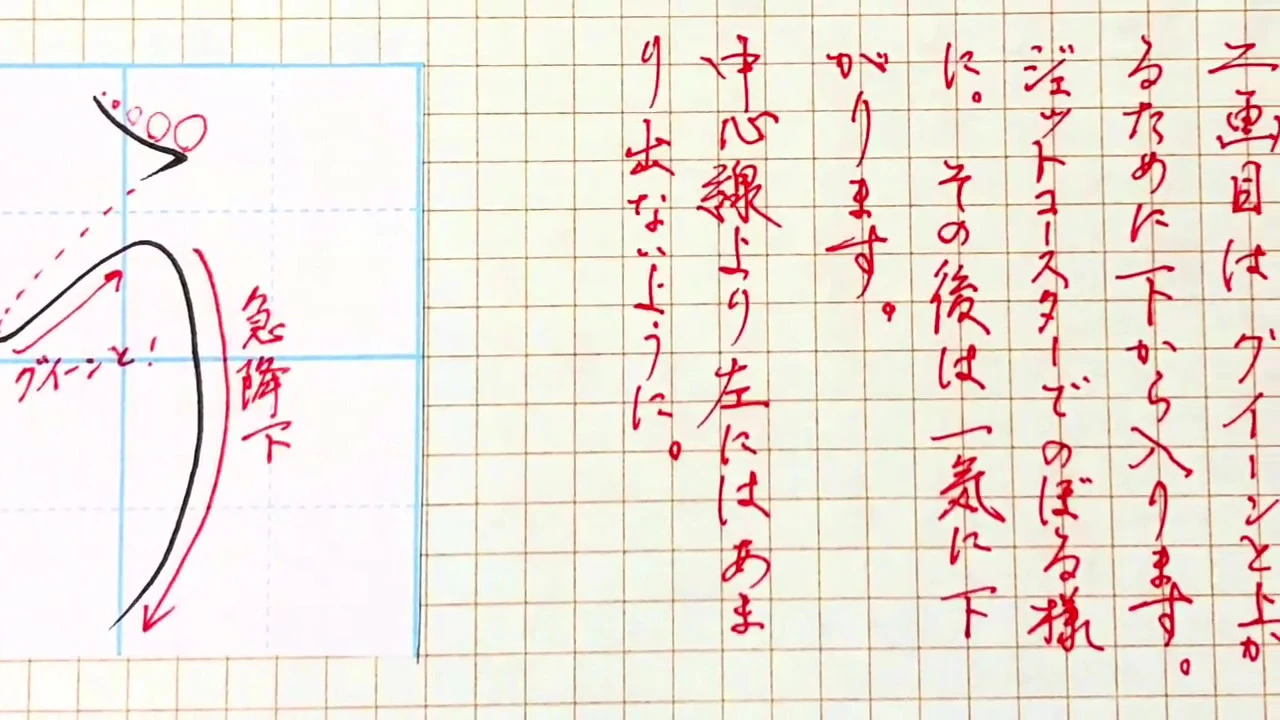 二画目は グイーンと上が
るために下から入ります。
ジェットコースターでのぼる様
に。 その後は一気に下
がります。
中心線より左にはあま
り出ないように。
急降下
グイーンと!